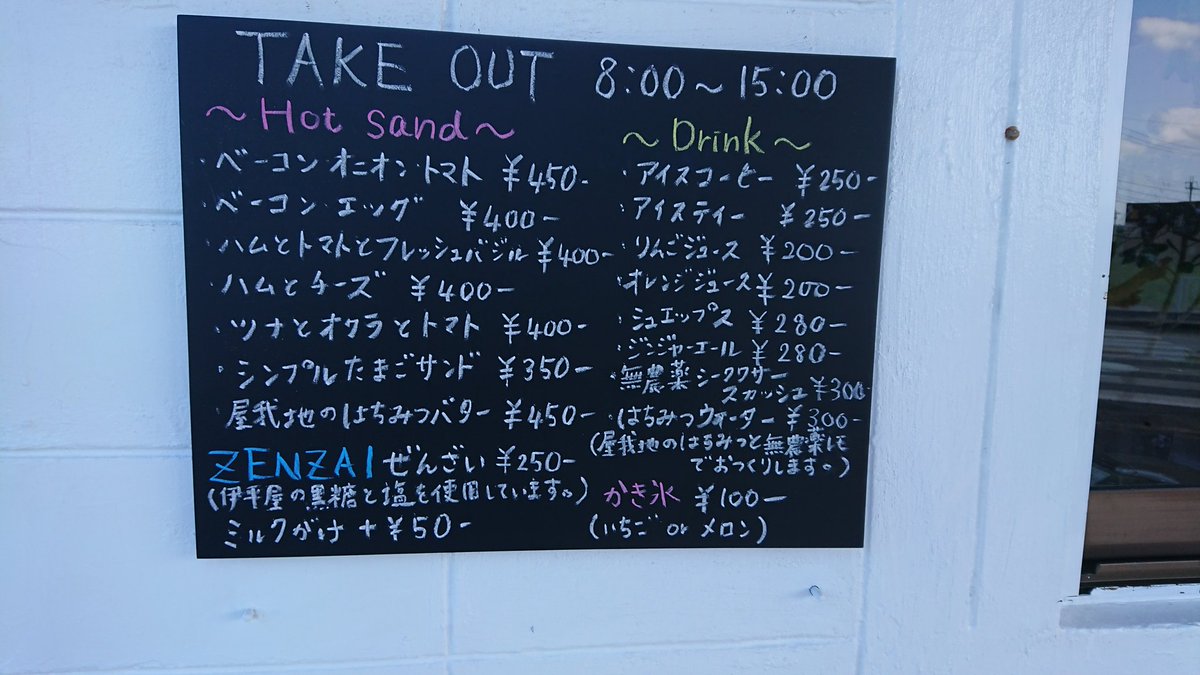 TAKE OUT 8:00～15:00
～Hot sand～
・ベーコンオニオントマト ¥450-
・ベーコンエッグ ¥400-
・ハムとトマトとフレッシュバジル ¥400-
・ハムとチーズ ¥400-
・ツナとオクラとトマト ¥400-
・シンプルたまごサンド ¥350-
・屋我地のはちみつバター ¥450-
ZENZAI ぜんざい ¥250-
(伊平屋の黒糖と塩を使用しています。)
ミルクがけ +¥50-
～Drink～
・アイスコーヒー ¥250-
・アイスティー ¥250-
・りんごジュース ¥200-
・オレンジジュース ¥200-
・シュエップス ¥280-
・ジンジャーエール ¥280-
・無農薬シークワサー
スカッシュ ¥300
・はちみつウォーター ¥300-
(屋我地のはちみつと無農薬レモ
でおつくりします。)
かき氷 ¥100-
(いちご or メロン)